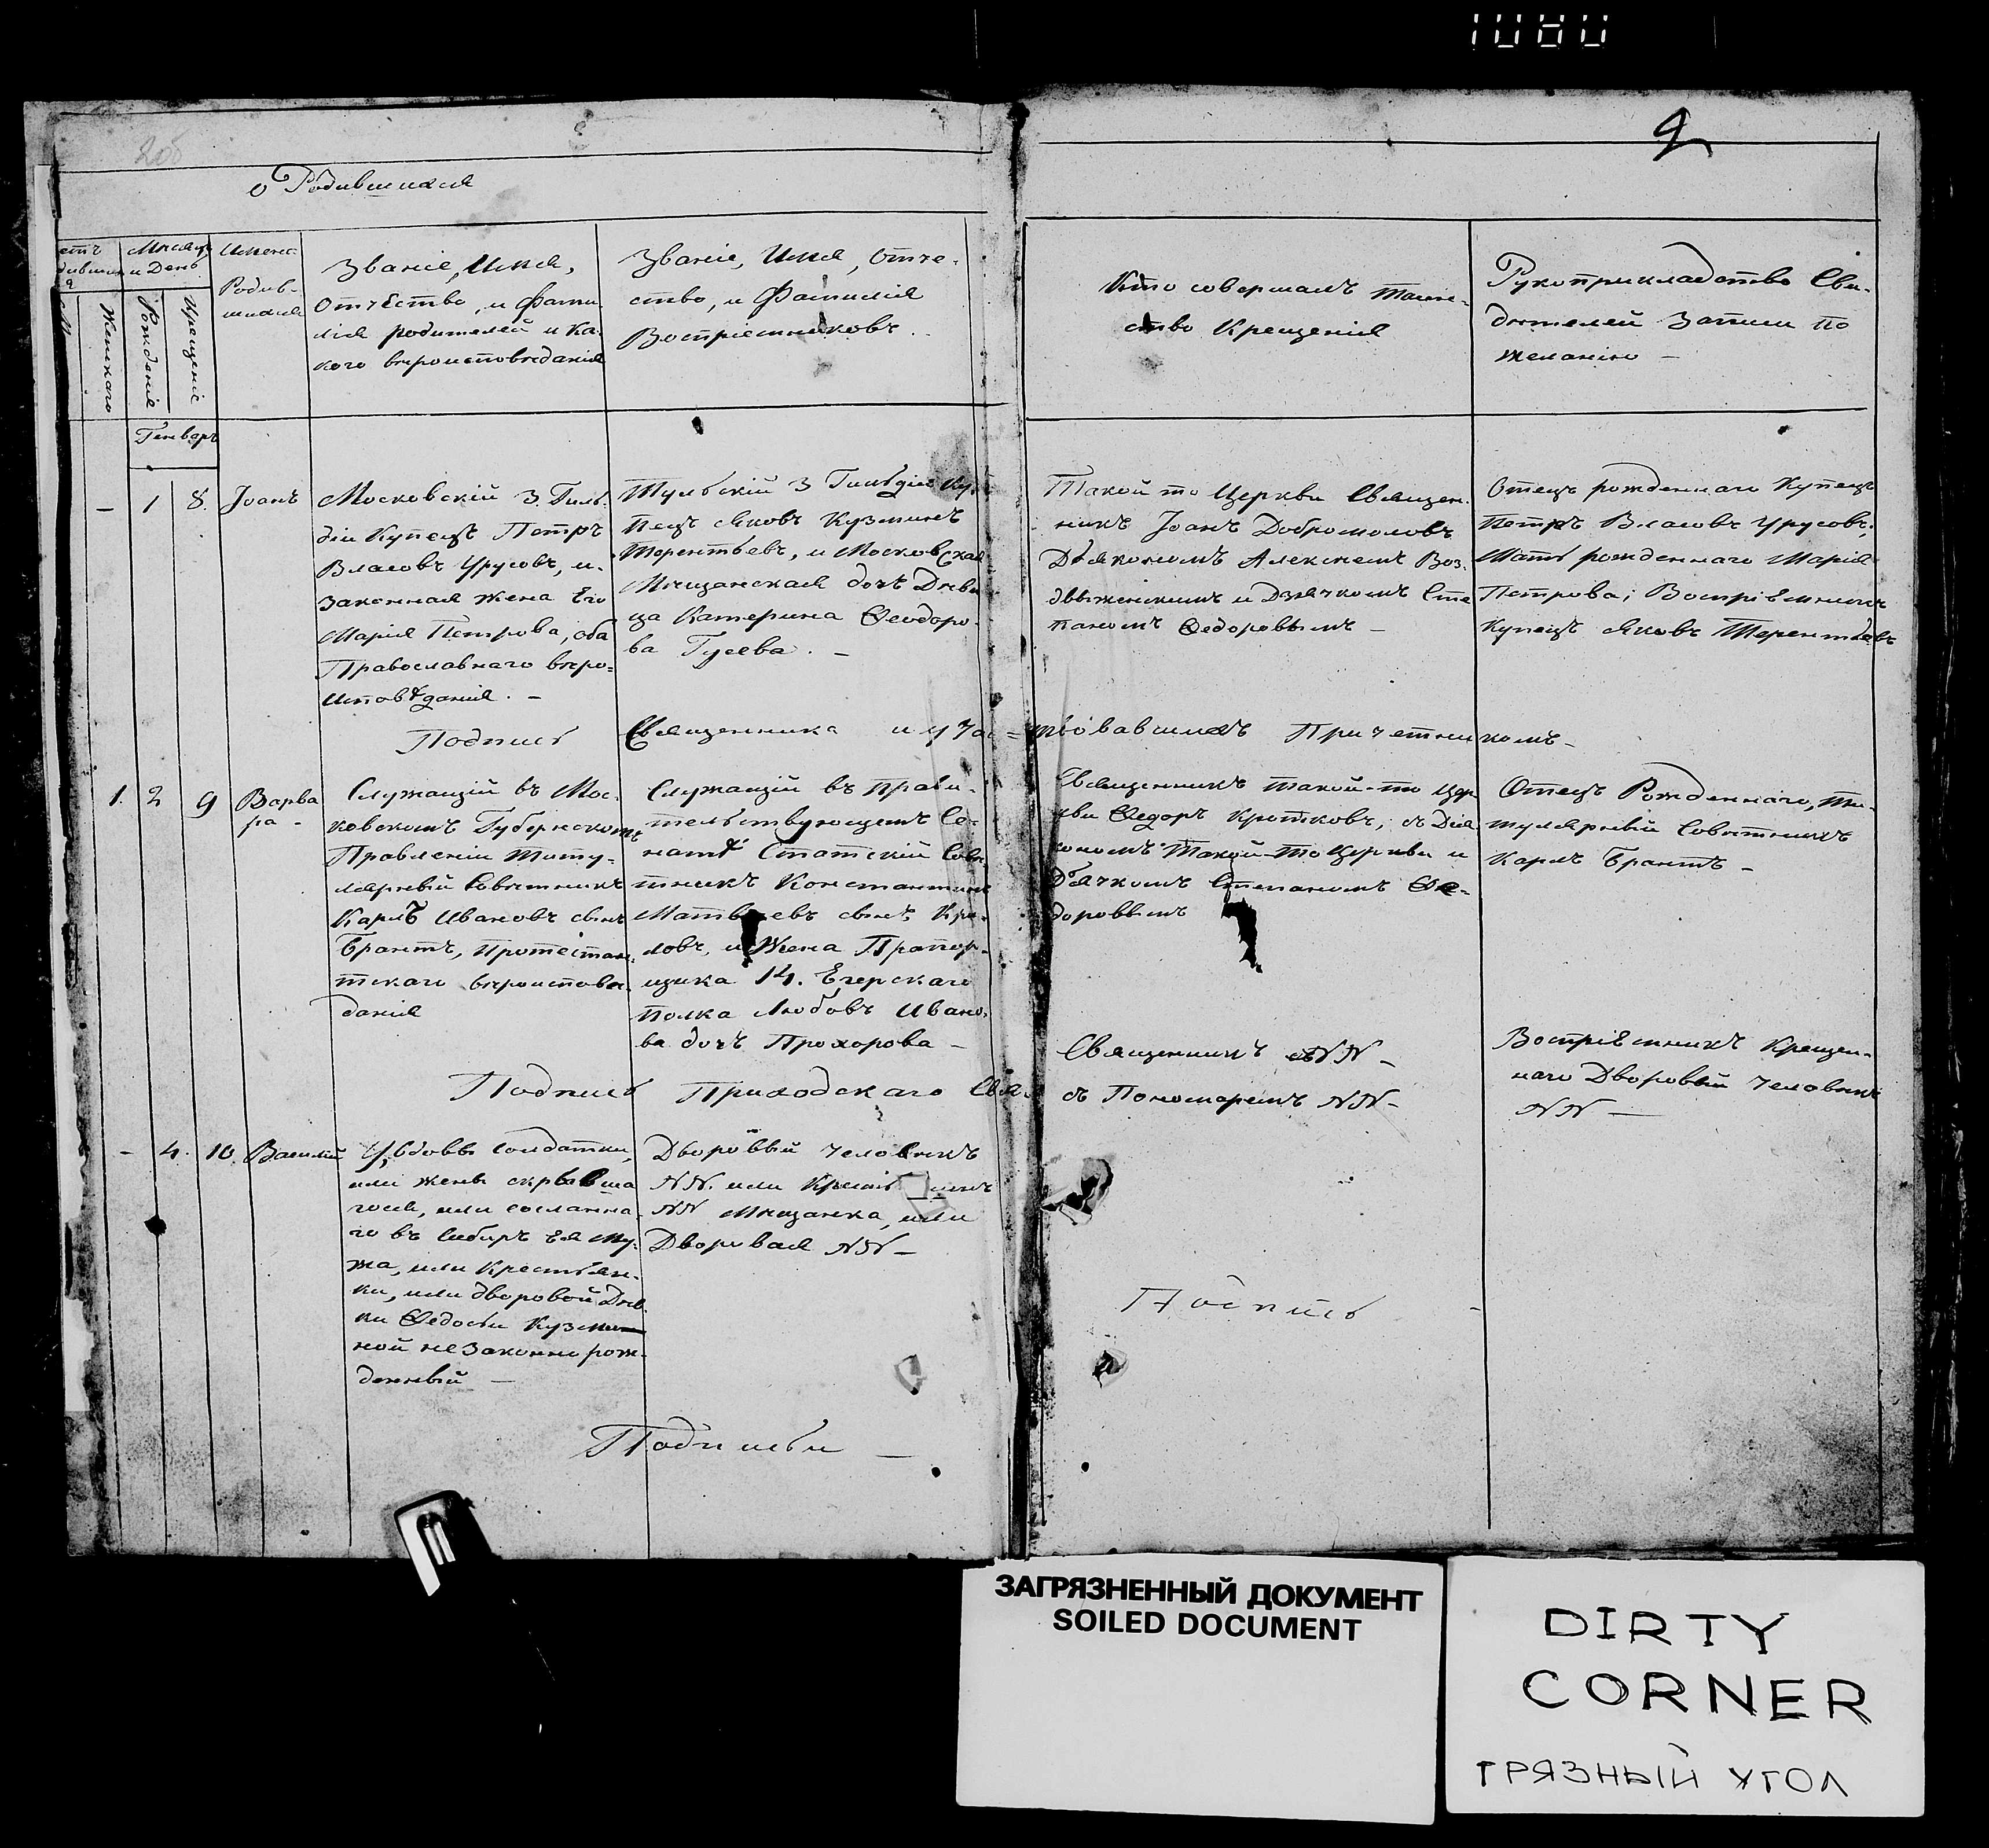 1080
2об
9
О Родившихся
Месяцъ и День
Женскаго
Рожденія
Крещеніе
Имена
Родив-
шихся
Званіе, Имя,
Отчество, и Фами-
лія родителей и Ка-
кого вероисповеданія
Званіе, Имя, Отче-
ство, и Фамилія
Воспріемниковъ.
Кто совершалъ таин-
ство Крещенія
Рукоприкладство Сви-
детелей Записи по
желанію —
Генварь
— 1 8. Іоанъ
Московскій 3. Гиль-
діи Купецъ Петръ
Власовъ Урусовъ, и.
законная жена Его
Марія Петрова, оба
Православнаго веро-
исповѣданія. —
Тульскій 3 Гильдіи Ку-
пецъ Яковъ Кузминъ
Терентьевъ, и Московская
Мещанская дочь Деви-
ца Катерина Ѳеодоро-
ва Гусева. —
Такой то Церкви Священ-
никъ Іоанъ Добромоловъ
Діякономъ Алексеемъ Воз-
движенскимъ и Дьячкомъ Сте
паномъ Ѳедоровымъ —
Отецъ рожденнаго Купецъ
Петръ Власовъ Урусовъ;
Мать рожденнаго Марія
Петрова; Воспріемникъ
Купецъ Яковъ Терентьевъ
Подпись Священника и учас=твовавшихъ Причетникомъ —
1. 2 9 Варва
ра —
Служащій въ Мос-
ковскомъ Губернскомъ
Правленіи Титу-
лярный Советникъ
Карлъ Ивановъ сынъ
Брантъ, Протестан-
тскаго вероиспове-
данія
Служащій въ Прави-
тельствующемъ Се-
натѣ Статскій Сове-
тникъ Константинъ
Матвеевъ сынъ Кры-
ловъ, и Жена Прапор-
щика 14. Егерскаго
полка Любовь Ивано-
ва дочь Прохорова —
Священникъ такой-то Цер-
кви Ѳедоръ Кротковъ, съ Дія-
кономъ Такой-то Церкви и
Дьячкомъ Степаномъ Ѳе-
доровымъ
Отецъ Рожденнаго, Ти-
тулярный Советникъ
Карлъ Брантъ —
Подпись Приходскаго Свя-
Священникъ NN —
съ Пономаремъ NN —
Воспріемникъ Крещен-
наго Дворовый человекъ
NN —
— 4. 10. Василій
У вдовы солдатки,
или жены скрывша
гося, или сосланна-
го въ Сибирь Ея му-
жа, или Крестьян-
ки, или дворовой Дев-
ки Ѳедосьи Кузми-
ной незаконно рож-
денный —
Дворовый человекъ
NN. или Крестьянинъ
NN Мещанка, или
Дворовая NN —
Подпись —
Подписи —
ЗАГРЯЗНЕННЫЙ ДОКУМЕНТ
SOILED DOCUMENT
DIRTY
CORNER
ГРЯЗНЫЙ УГОЛ